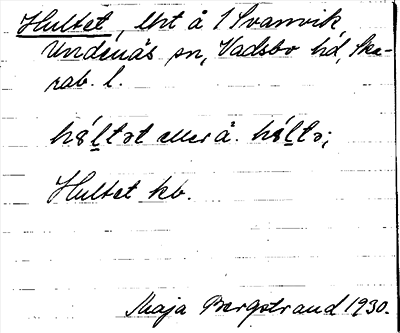 Hultet, lht å 1 Svanvik
Undenäs sn, Vadsbo hd, Ska-
rab. l.
hó̀ltət eller å. hó̀ltə;
Hultet kb.
Maja Bergstrand 1930.